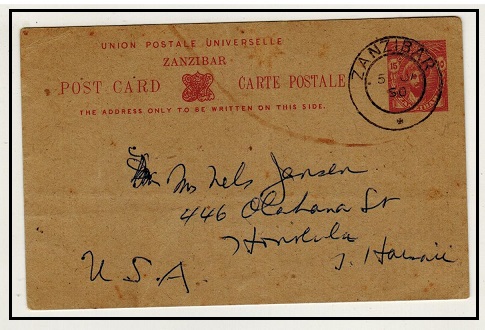 UNION POSTALE UNIVERSELLE
ZANZIBAR
POST CARD CARTE POSTALE
THE ADDRESS ONLY TO BE WRITTEN ON THIS SIDE.
ZANZIBAR
15
5
50
Mrs Nels Jensen
446 Olohana St
Honolulu
T. Hawaii
U.S.A.